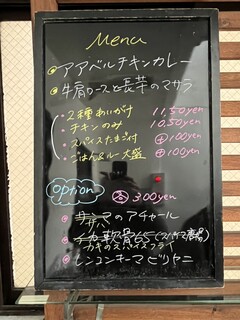 Menu
アアベルチキンカレー
牛肩ロースと長芋のマサラ
2種あいがけ 11,50yen
チキンのみ 10,50yen
スパイスたまご付 ⊕100yen
ごはん&ルー大盛 ⊕100yen
Option 各 300yen
のアチャール
軟骨65
カキのスパイスフライ
レンコンキーマビリヤニ